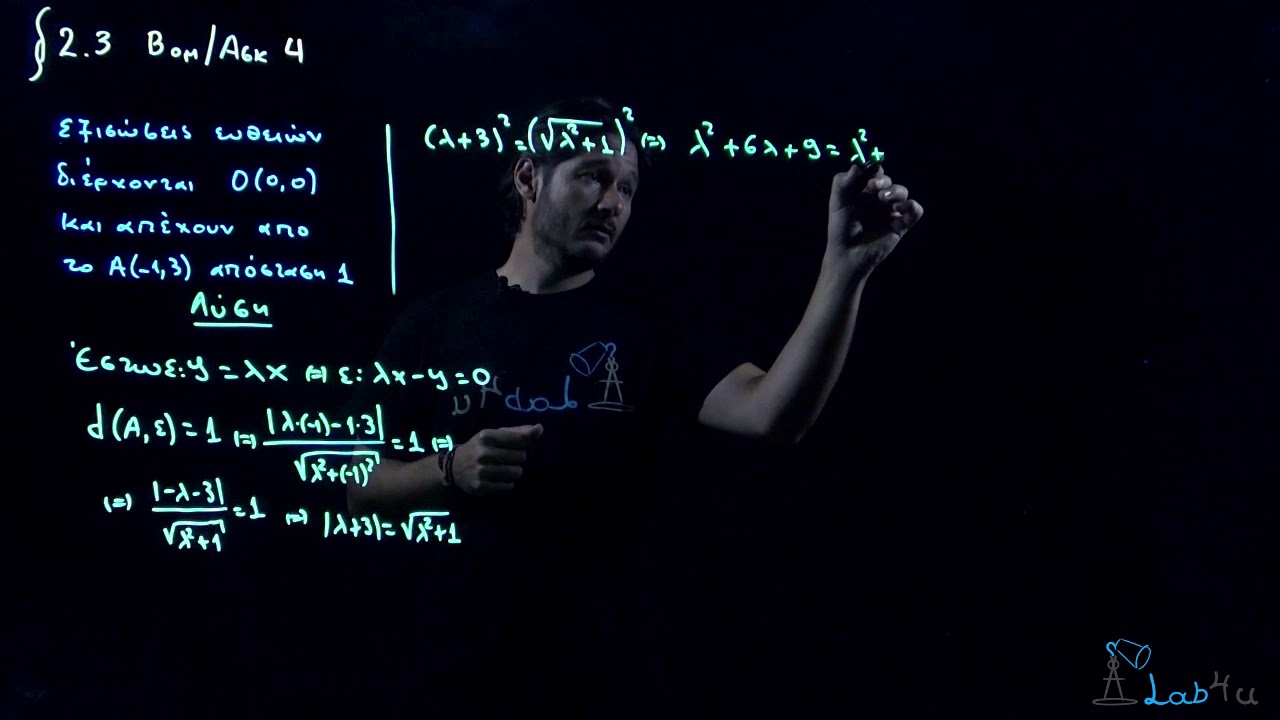 § 2.3 Βομ/Ασκ 4
εξισώσεις ευθειών
διέρχονται Ο(0,0)
και απέχουν απο
το Α(-1,3) απόσταση 1
Λύση
Έστω ε: y = λx ⇔ ε: λx - y = 0
d(A,ε) = 1 ⇔ |λ·(-1) - 1·3| / √(λ² + (-1)²) = 1 ⇔
⇔ |-λ-3| / √(λ²+1) = 1 ⇔ |λ+3| = √(λ²+1)
(λ+3)² = (√(λ²+1))² ⇔ λ² + 6λ + 9 = λ² +
Lab4u